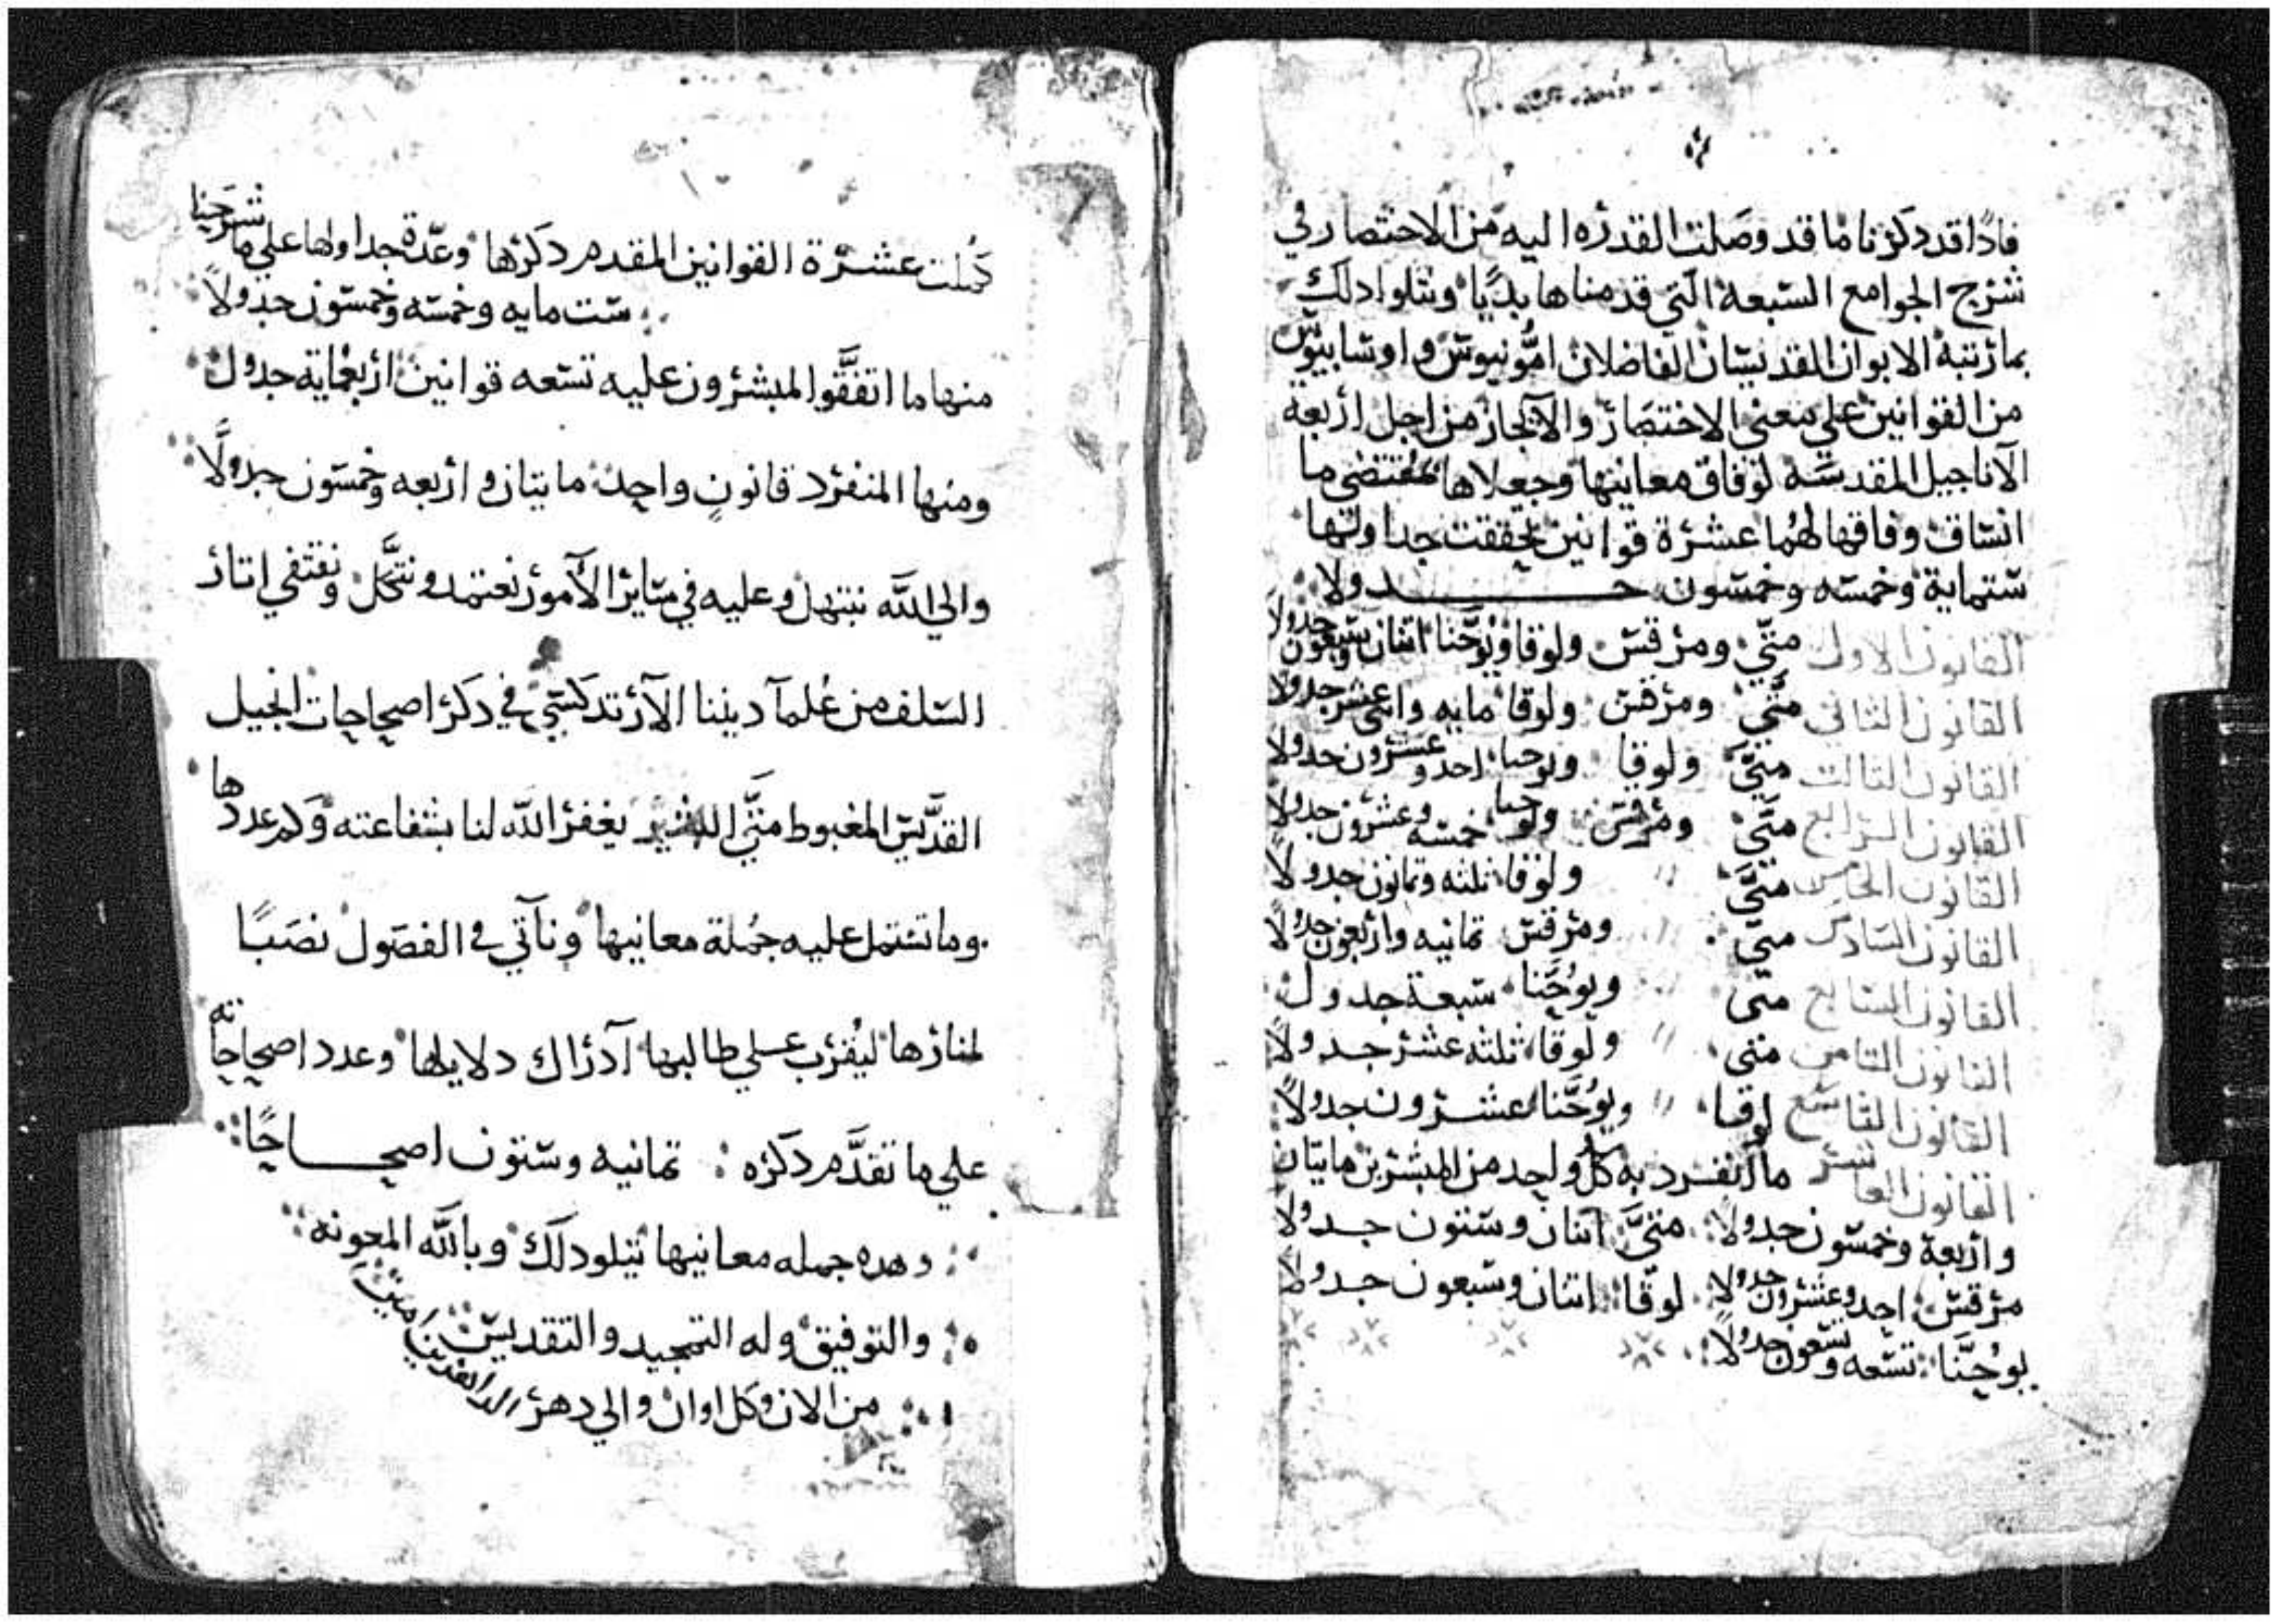 فاذا قد ذكرنا ما قد وصلت القدره اليه من الاختصار في
شرح الجوامع السبعة التي قدمناها بديا ونتلوا دلك
بما رتبة الابوان القديسان الفاضلان امونيوس واوسابيوس
من القوانين علي معني الاختصار والآيجاز من اجل اربعة
الآناجيل المقدسة لوفاق معانيها وجعلاها لمقتضي ما
اتساق وفاقها لهما عشرة قوانين تحققت جداولها
ستماية وخمسه وخمسون جدولا
القانون الاول متي ومرقس ولوقا ويوحنا اتنان وسبعون جدولا
القانون التاني متي ومرقس ولوقا مايه واتني عشر جدولا
القانون التالت متي ولوقا ويوحنا احد وعشرون جدولا
القانون الرابع متي ومرقس ويوحنا خمسه وعشرون جدولا
القانون الخامس متي ولوقا تلته وتمانون جدولا
القانون السادس متي ومرقس تمانيه واربعون جدولا
القانون السابع متي ويوحنا سبعة جدول
القانون التامن متي ولوقا تلته عشر جدولا
القانون التاسع لوقا ويوحنا عشرون جدولا
القانون العاشر ما انفرد به كل واحد من المبشرين مايتان
واربعة وخمسون جدولا متي اتنان وستون جدولا
مرقس احد وعشرون جدولا لوقا اتنان وسبعون جدولا
يوحنا تسعه وتسعون جدولا
كملت عشرة القوانين المقدم دكرها وعدة جداولها علي ما شرحنا
ست مايه وخمسه وخمسون جدولا
منها ما اتفقوا المبشرون عليه تسعه قوانين اربعماية جدول
ومنها المنفرد قانون واحد مايتان واربعه وخمسون جدولا
والي الله نبتهل وعليه في ساير الآمور نعتمد ونتكل ونقتفي اتار
السلف من علمآ ديننا الآرتدكسي في دكر اصحاحات انجيل
القديس المغبوط متي البشير يغفر الله لنا بشفاعته وكم عددها
وما تشتمل عليه جملة معانيها ونآتي في الفصول نصبا
لمنارها ليقرب علي طالبها آدراك دلايلها وعدد اصحاحاته
علي ما تقدم دكره تمانيه وستون اصحاحا
وهده جمله معانيها تتلو دلك وبالله المعونه
والتوفيق وله التمجيد والتقديس
من الان وكل اوان والي دهر الداهرين امين